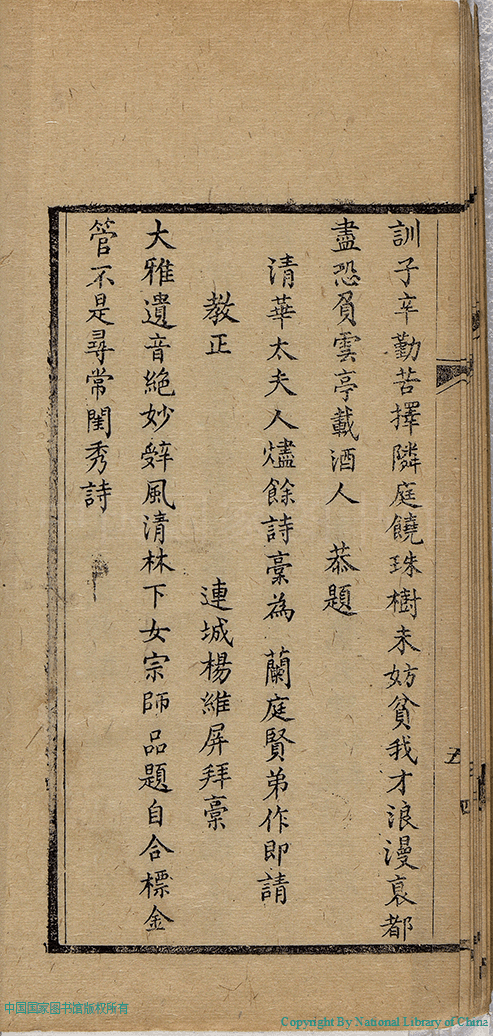 訓子辛勤苦擇隣庭饒珠樹未妨貧我才浪漫裒都
盡恐負雲亭載酒人　恭題
清華太夫人燼餘詩稾為　蘭庭賢弟作即請
教正　連城楊維屏拜稾
大雅遺音絶妙辤風清林下女宗師品題自合標金
管不是尋常閨秀詩
五
中国国家图书馆版权所有
Copyright By National Library of China